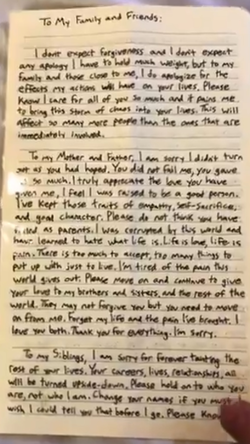 To My Family and Friends:
I dont expect forgiveness and I don't expect
any apology I have to hold much weight, but to my
Family and those close to me, I do apologize for the
effects my actions will have on your lives. Please
Know I care for all of you so much and it pains me
to bring this storm of chaos into your lives. This will
affect so many more people than the ones that are
immediately involved.
To my Mother and Father, I am sorry I didn't turn
out as you had hoped. You did not fail me, you gave
so much. I truly appreciate the love you have
given me, I feel I was raised to be a good person.
I've kept those traits of empathy, self-sacrifice,
and good character. Please do not think you have
failed as parents. I was corrupted by this world and
have learned to hate what life is. Life is love, life is
pain. There is too much to accept, too many things to
put up with just to live. I'm tired of the pain this
world gives out. Please move on and continue to give
your love to my brothers and sisters, and the rest of the
world. They may not forgive you but you need to move
on from me. Forget my life and the pain I've brought. I
love you both. Thank you for everything. I'm sorry.
To my Siblings, I am sorry for forever tainting the
rest of your lives. Your careers, lives, relationships, all
will be turned upside-down. Please hold on to who you
are, not who I am. Change your names if you must. I
wish I could tell you that before I go. Please Know